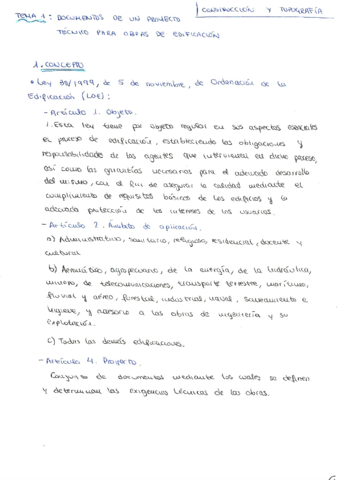 CONSTRUCCIÓN Y TOPOGRAFÍA
TEMA 1: DOCUMENTOS DE UN PROYECTO
TÉCNICO PARA OBRAS DE EDIFICACIÓN
1. CONCEPTO
• Ley 38/1999, de 5 de noviembre, de Ordenación de la
Edificación (LOE):
- Artículo 1. Objeto.
1. Esta ley tiene por objeto regular en sus aspectos esenciales
el proceso de edificación, estableciendo las obligaciones y
responsabilidades de los agentes que intervienen en dicho proceso,
así como las garantías necesarias para el adecuado desarrollo
del mismo, con el fin de asegurar la calidad mediante el
cumplimiento de requisitos básicos de los edificios y la
adecuada protección de los intereses de los usuarios.
- Artículo 2. Ámbito de aplicación.
a) Administrativo, sanitario, religioso, residencial, docente y
cultural.
b) Aeronáutico, agropecuario, de la energía, de la hidráulica,
minero, de telecomunicaciones, transporte terrestre, marítimo,
fluvial y aéreo, forestal, industrial, naval, saneamiento e
higiene, y accesorio a las obras de ingeniería y su
explotación.
c) Todas las demás edificaciones.
- Artículo 4. Proyecto.
Conjunto de documentos mediante los cuales se definen
y determinan las exigencias técnicas de las obras.